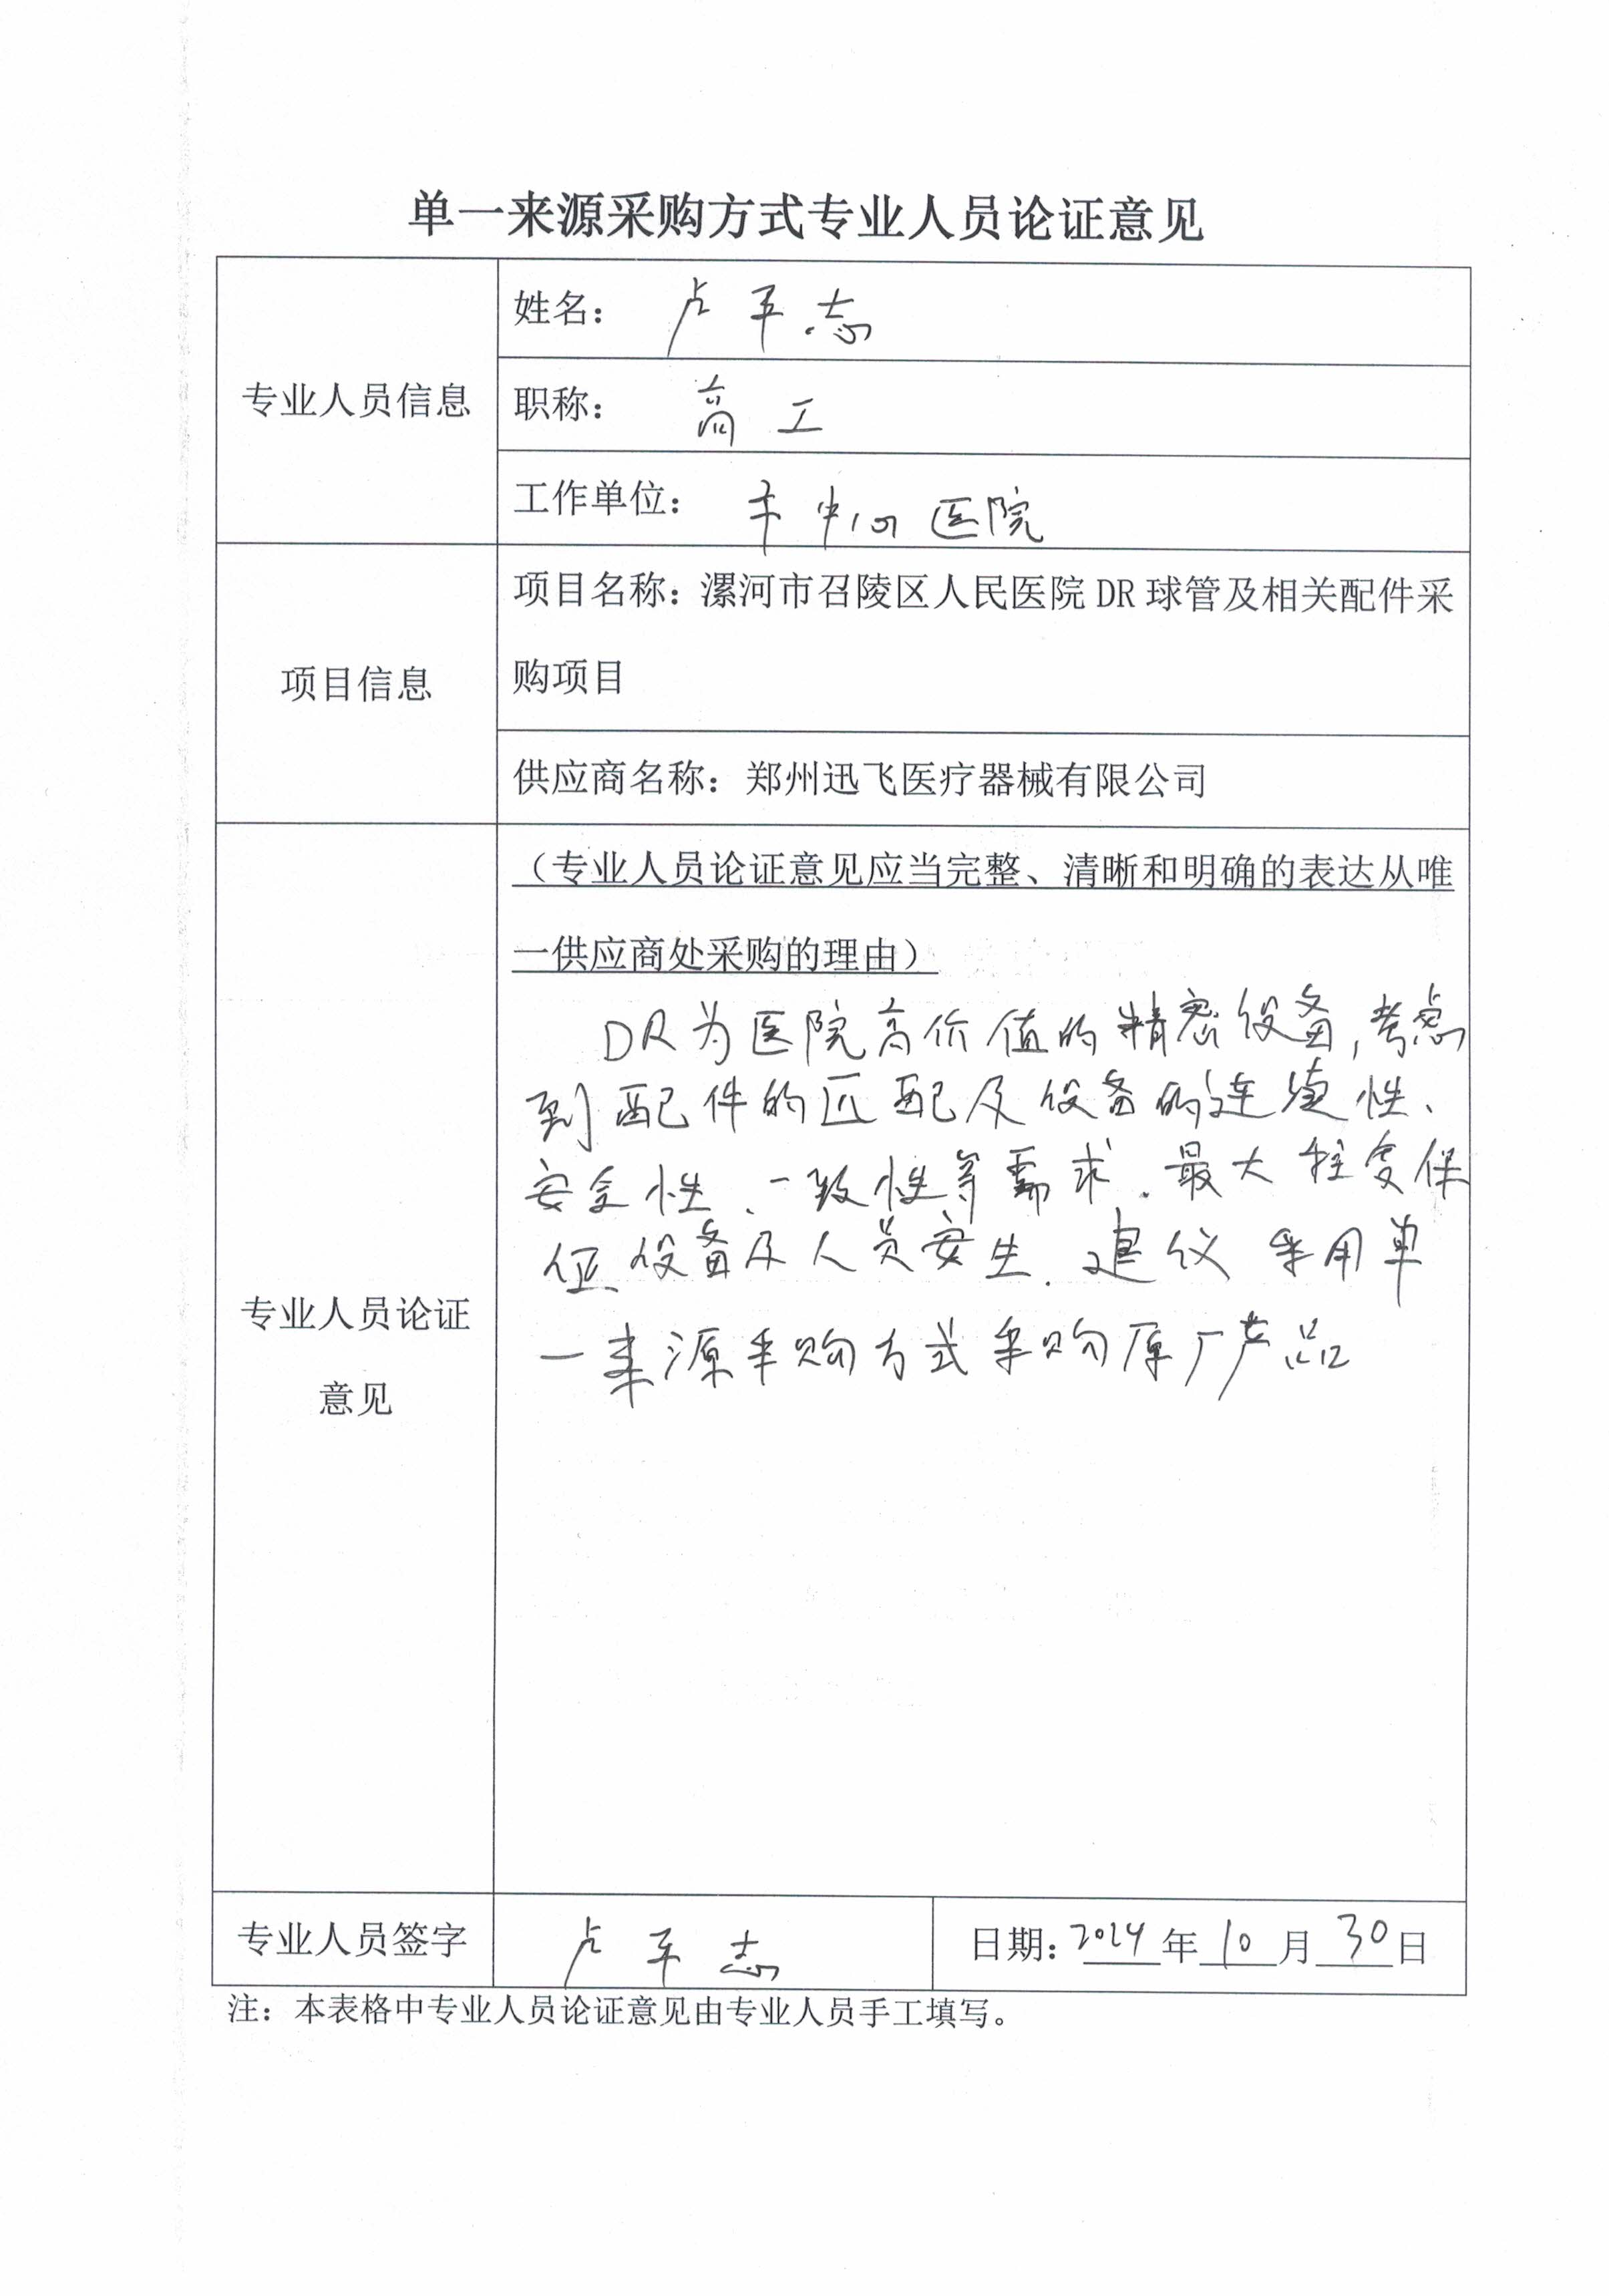 单一来源采购方式专业人员论证意见
专业人员信息
姓名： 卢平志
职称： 高工
工作单位： 市中心医院
项目信息
项目名称：漯河市召陵区人民医院 DR 球管及相关配件采
购项目
供应商名称：郑州迅飞医疗器械有限公司
专业人员论证
意见
（专业人员论证意见应当完整、清晰和明确的表达从唯
一供应商处采购的理由）
DR为医院高价值的精密设备，考虑
到配件的匹配及设备的连续性、
安全性、一致性等需求．最大程度保
证设备及人员安全．建议采用单
一来源采购方式采购原厂产品
专业人员签字
卢平志
日期：2024年10月30日
注：本表格中专业人员论证意见由专业人员手工填写。